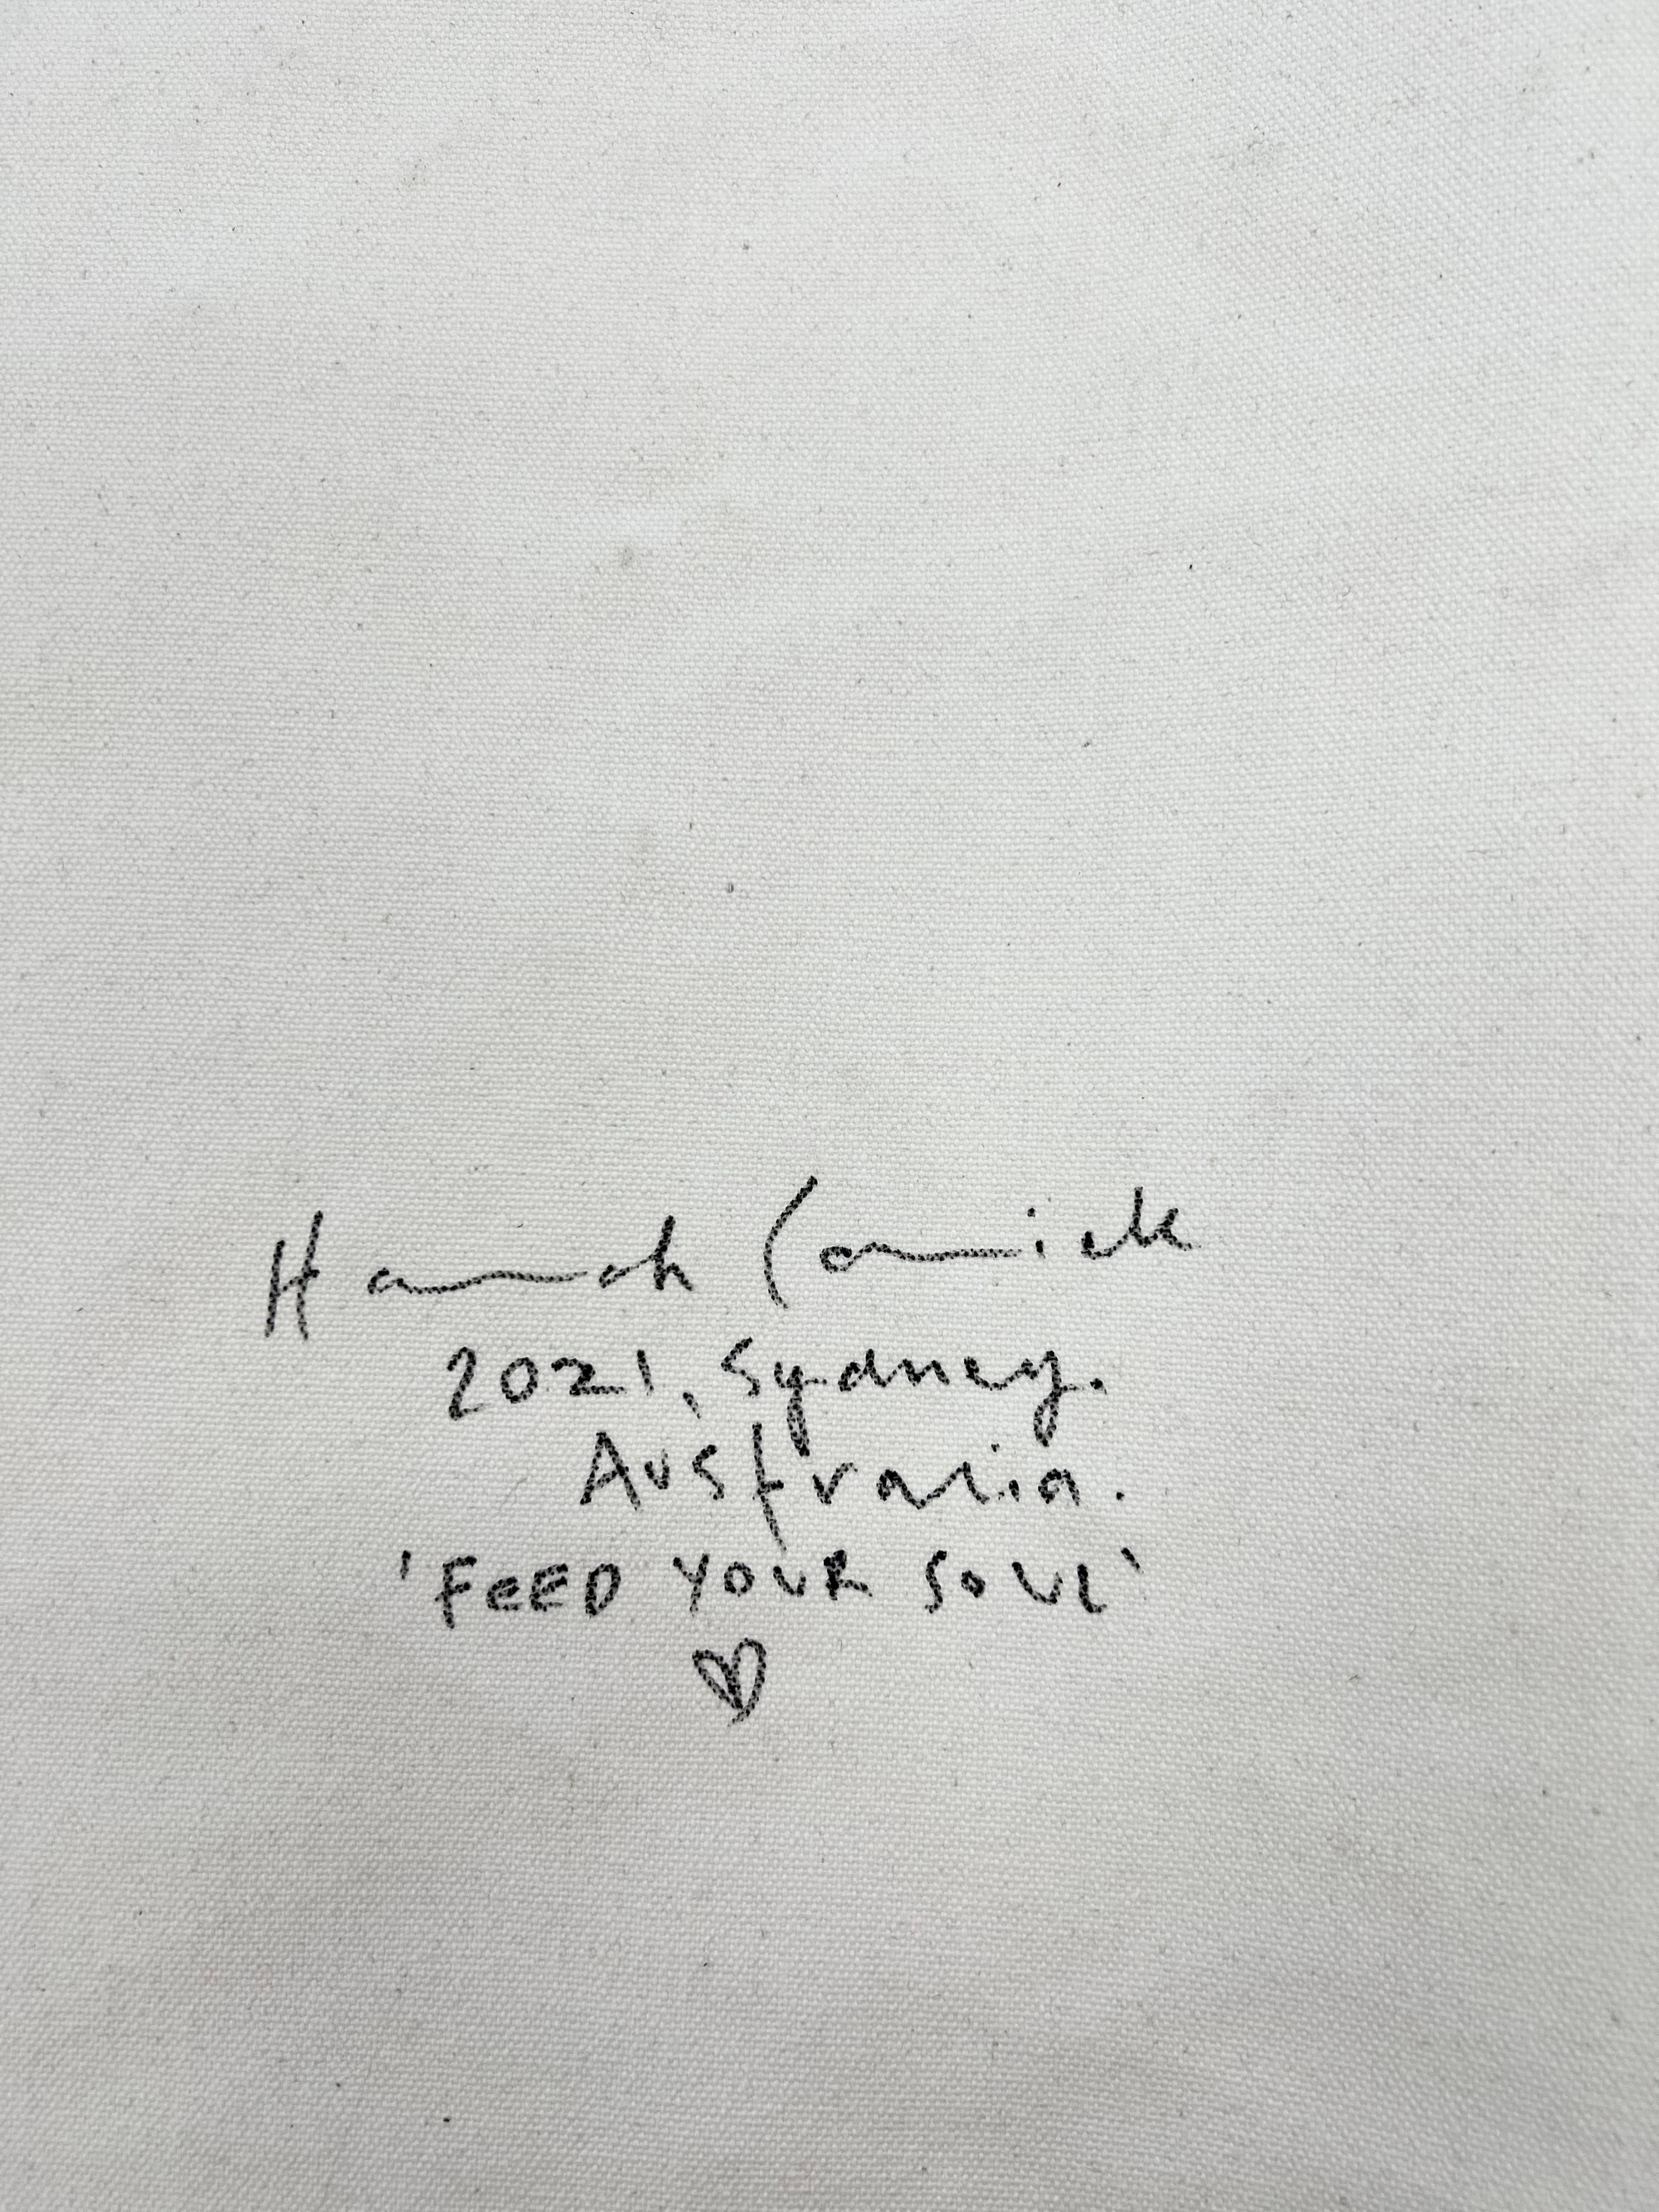 Hannah
2021, Sydney.
Australia.
'FEED YOUR SOUL'